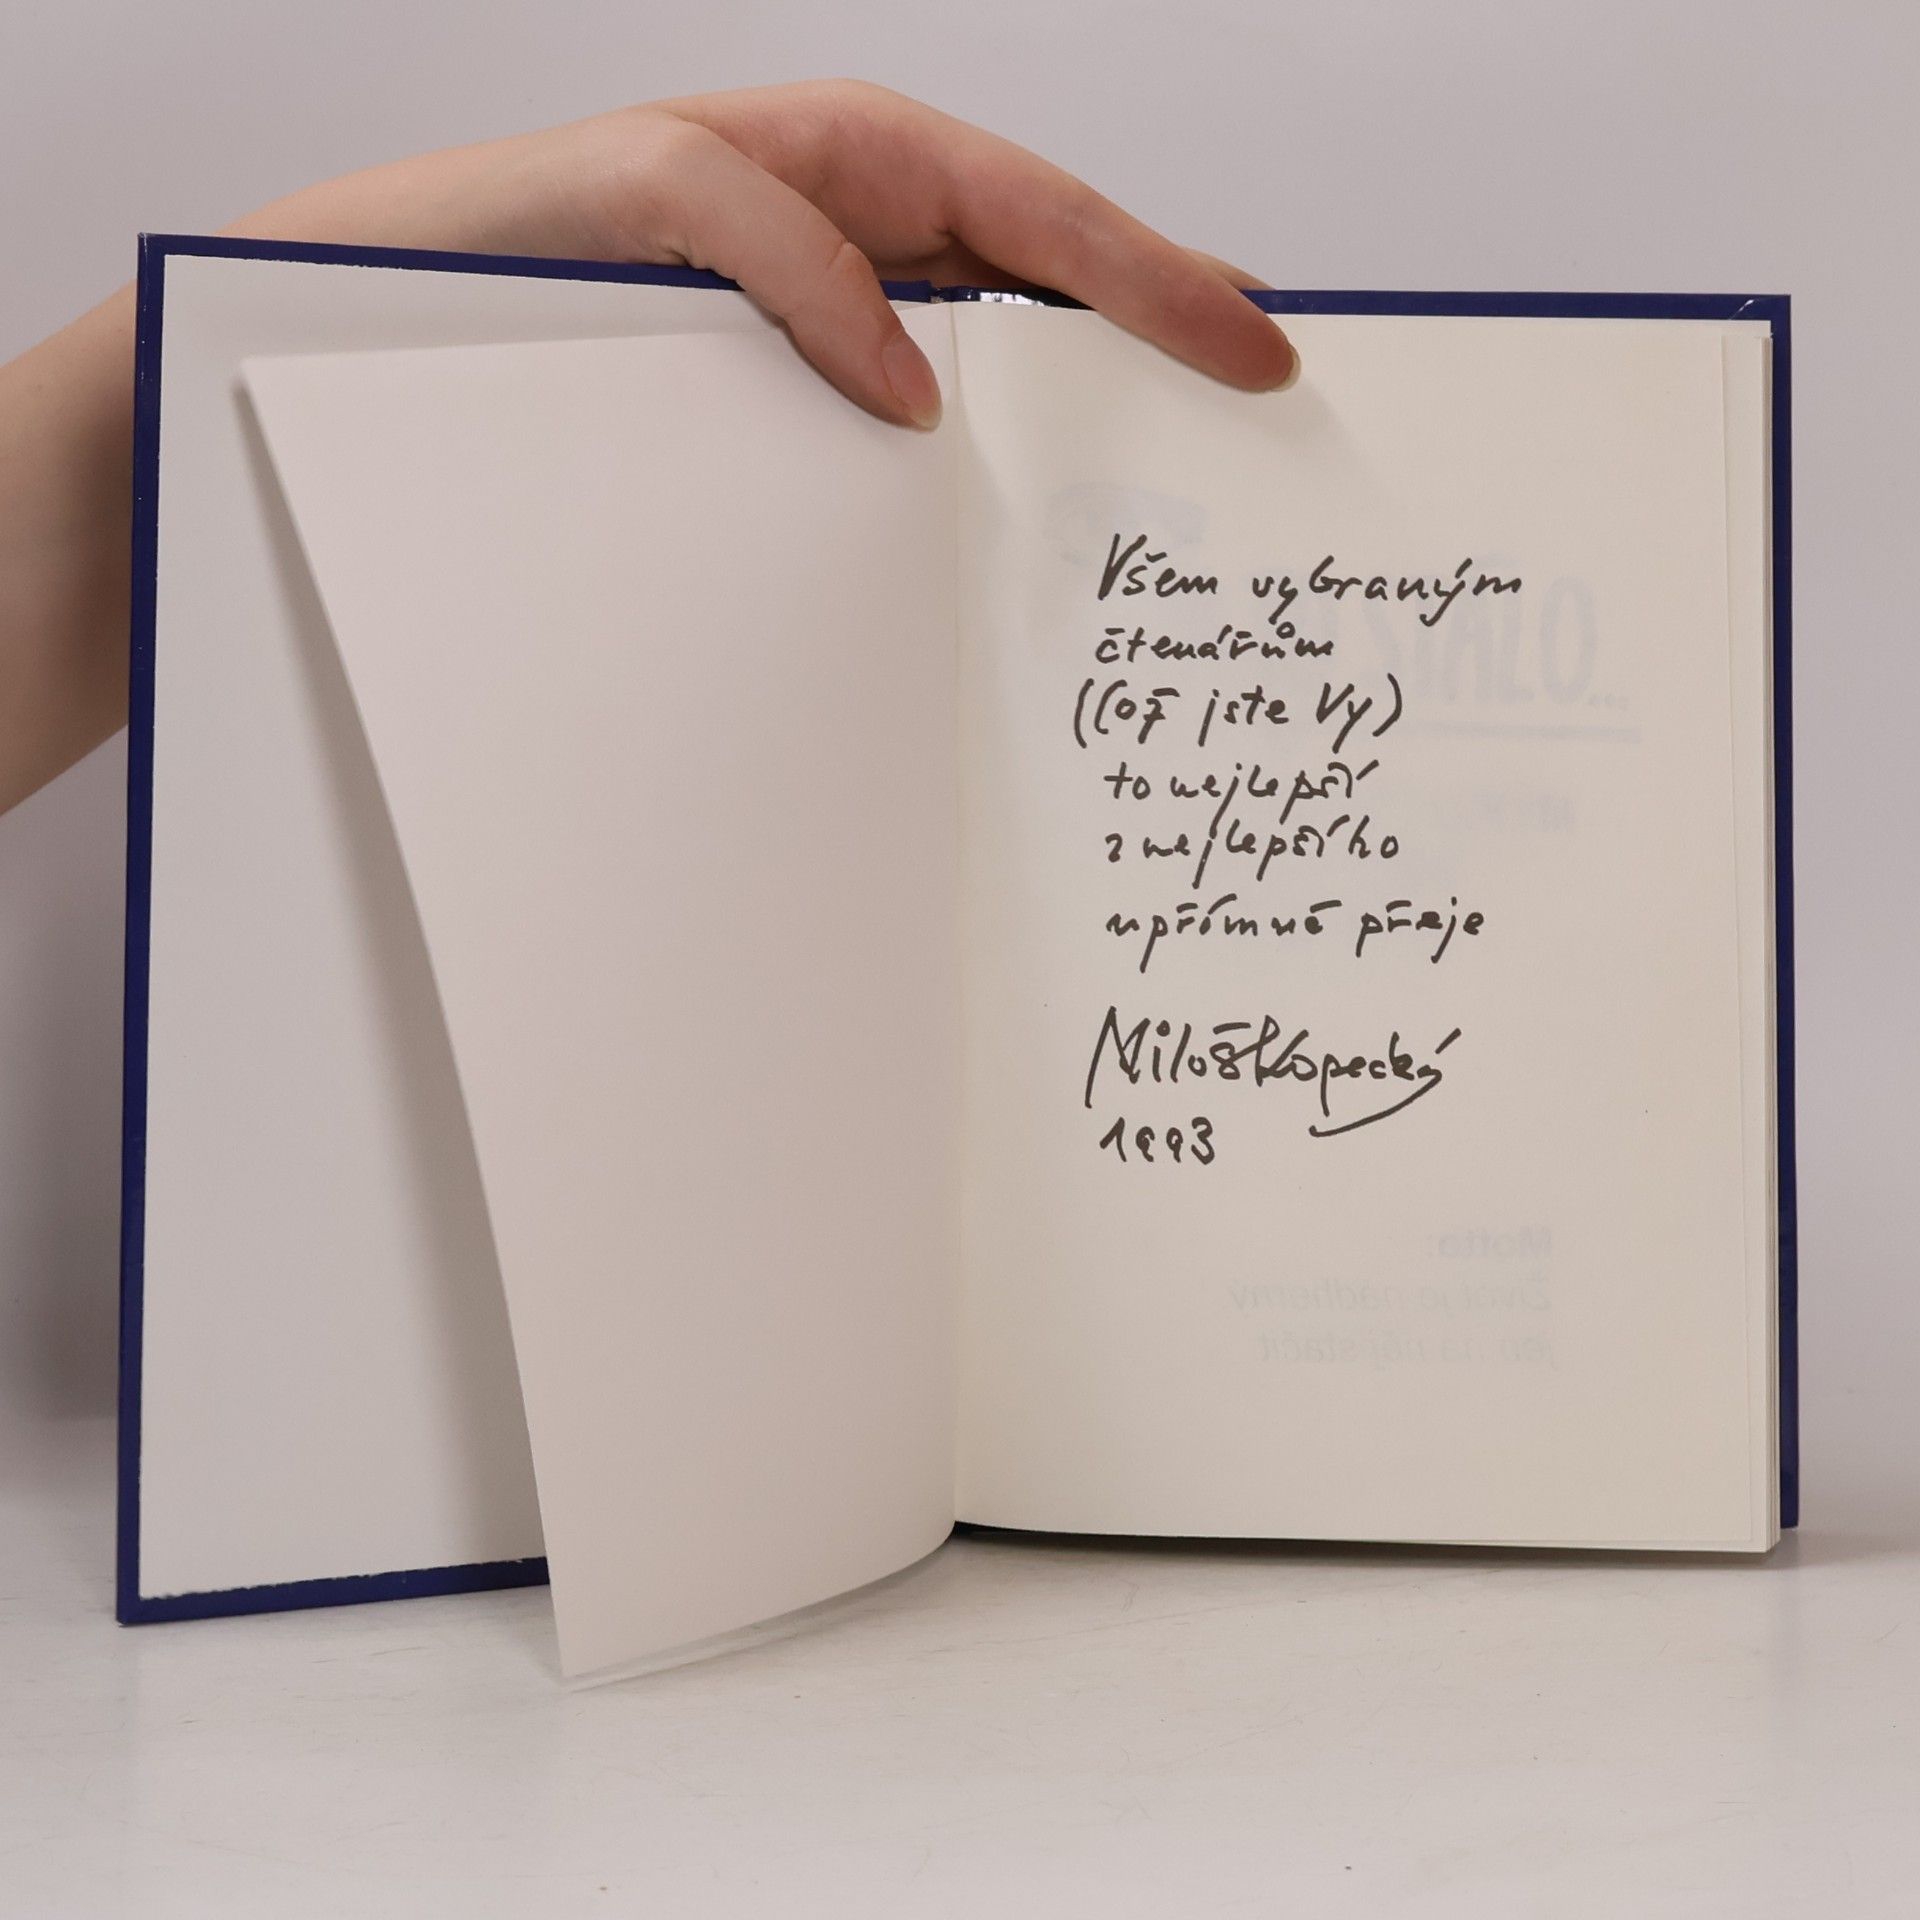 Všem vybraným
čtenářům
(Což jste Vy)
to nejlepší
z nejlepšího
upřímně přeje
Miloš Kopecký
1993
Motto:
Život je nádherný
jen na něj stačit